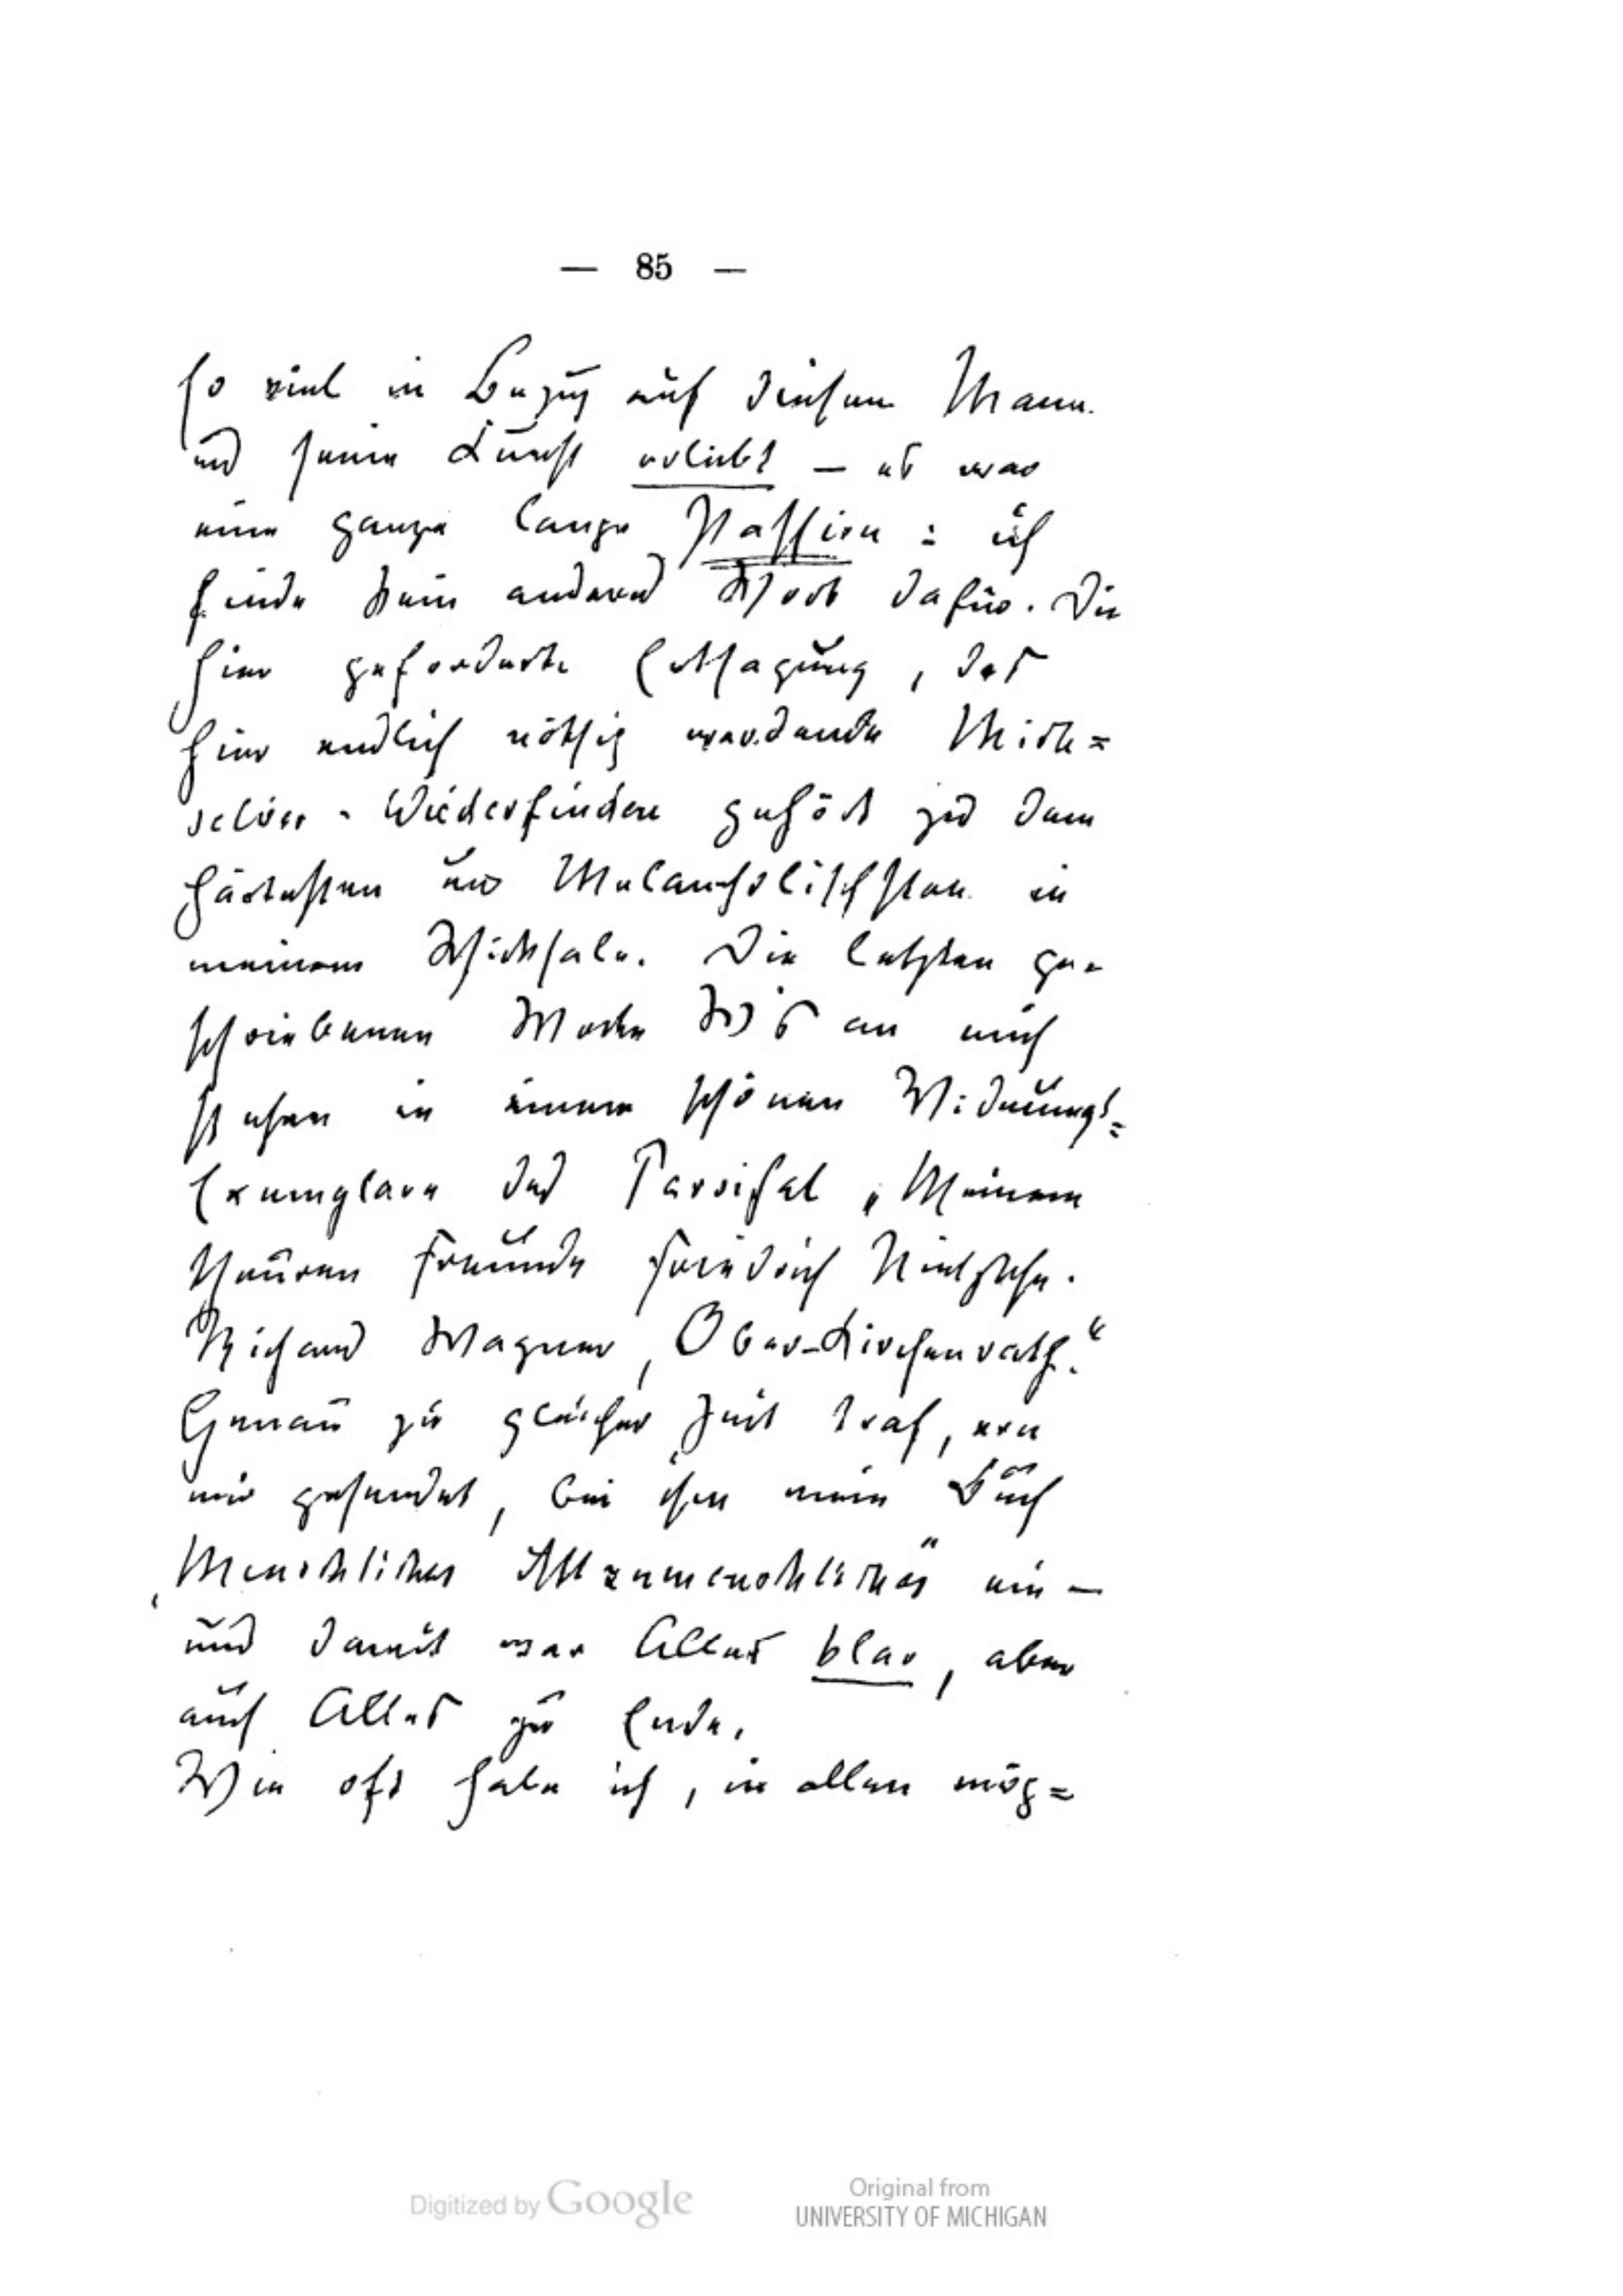 — 85 —
so viel in Bezug auf diesen Mann
und seine Kunst erlebt — es war
eine ganze lange Passion: ich
finde kein anderes Wort dafür. Die
hier geforderte Entsagung, das
hier endlich nöthig werdende Mich=
selber-Wiederfinden gehört zu dem
Härtesten und Melancholischsten in
meinem Schicksale. Die letzten ge=
schriebenen Worte W's an mich
stehen in einem schönen Widmungs=
Exemplare des Parsifal „Meinem
theuren Freunde Friedrich Nietzsche.
Richard Wagner, Ober-Kirchenrath.“
Genau zu gleicher Zeit traf, von
mir gesendet, bei ihm mein Buch
„Menschliches Allzumenschliches“ ein —
und damit war Alles klar, aber
auch Alles zu Ende.
Wie oft habe ich, in allen mög=
Digitized by Google
Original from
UNIVERSITY OF MICHIGAN